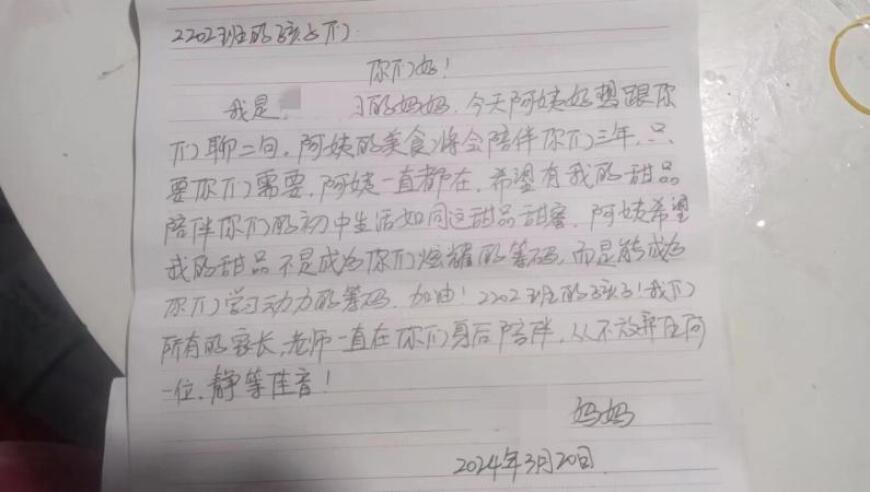 2202班的孩子们:
你们好!
我是 的妈妈.今天阿姨好想跟你
们聊二句,阿姨的美食将会陪伴你们三年,只
要你们需要,阿姨一直都在,希望有我的甜品
陪伴你们的初中生活如同这甜品甜蜜.阿姨希望
我的甜品不是成为你们炫耀的筹码,而是能成为
你们学习动力的筹码.加油!2202班的孩子!我们
所有的家长,老师一直在你们身后陪伴,从不放弃任何
一位.静等佳音!
妈妈
2024年3月20日